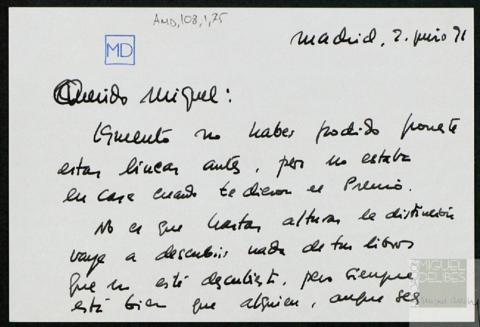 AMD, 108, 1, 75
MD
Madrid, 2. junio 91
Querido Miguel:
lamento no haber podido ponerte
estas líneas antes, pero no estaba
en casa cuando te dieron el Premio.
No es que a estas alturas la distinción
vaya a descubrir nada de tus libros
que no esté descubierto, pero siempre
está bien que alguien, aunque sea
MIGUEL
DELIBES